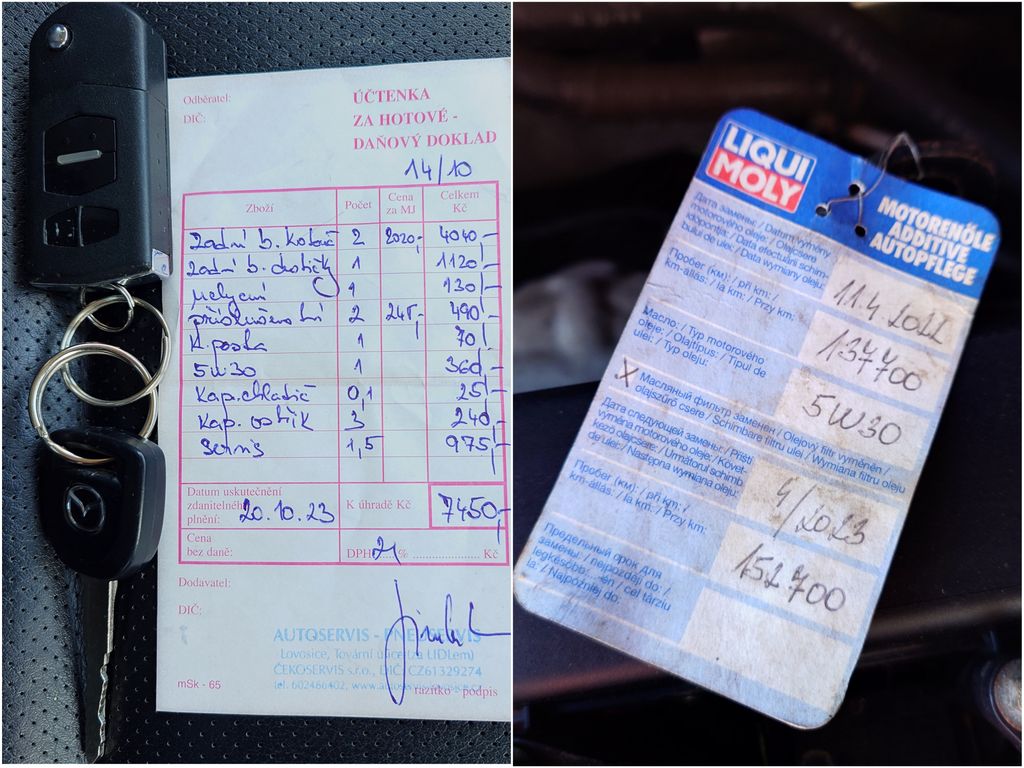 Odběratel:
DIČ:
ÚČTENKA
ZA HOTOVÉ -
DAŇOVÝ DOKLAD
14/10
Zboží Počet Cena za MJ Celkem Kč
Zadní b. kotouč 2 2020,- 4040,-
Zadní b. destičky 1 1120,-
1 130,-
příslušenství 2 245,- 490,-
1 70,-
5W30 1 360,-
Kap. chladič 0,1 25,-
Kap. ostřik 3 240,-
Servis 1,5 975,-
Datum uskutečnění
zdanitelného
plnění: 20.10.23
K úhradě Kč 7450,-
Cena
bez daně:
DPH 21 % .................... Kč
Dodavatel:
DIČ:
AUTOSERVIS - PNEUSERVIS
Lovosice, Tovární ulice (za LIDLem)
ČEKOSERVIS s.r.o., DIČ: CZ61329274
tel. 602466402, www.
mSk - 65
razítko - podpis
LIQUI
MOLY
MOTORENÖLE
ADDITIVE
AUTOPFLEGE
Дата замены: / Datum výměny
motorového oleje: / Olajcsere
időpontja: / Data efectuării schim-
bului de ulei: / Data wymiany oleju:
11.4.2022
Пробег (км): / při km: /
km-állás: / la km: / Przy km:
137700
Масло: / Typ motorového
oleje: / Olajtípus: / Tipul de
ulei: / Typ oleju:
5W30
X Масляный фильтр заменен / Olejový filtr vyměněn /
olajszűrő csere / Schimbare filtru ulei / Wymiana filtru oleju
Дата следующей замены: / Příští
výměna motorového oleje: / Követ-
kező olajcsere: / Următorul schimb
de ulei: / Następna wymiana oleju:
4/2023
Пробег (км): / při km: /
km-állás: / la km: / Przy km:
152700
Предельный срок для
замены: / nejpozději do: /
legkésőbb: ...-én / cel târziu
la: / Najpóźniej do: